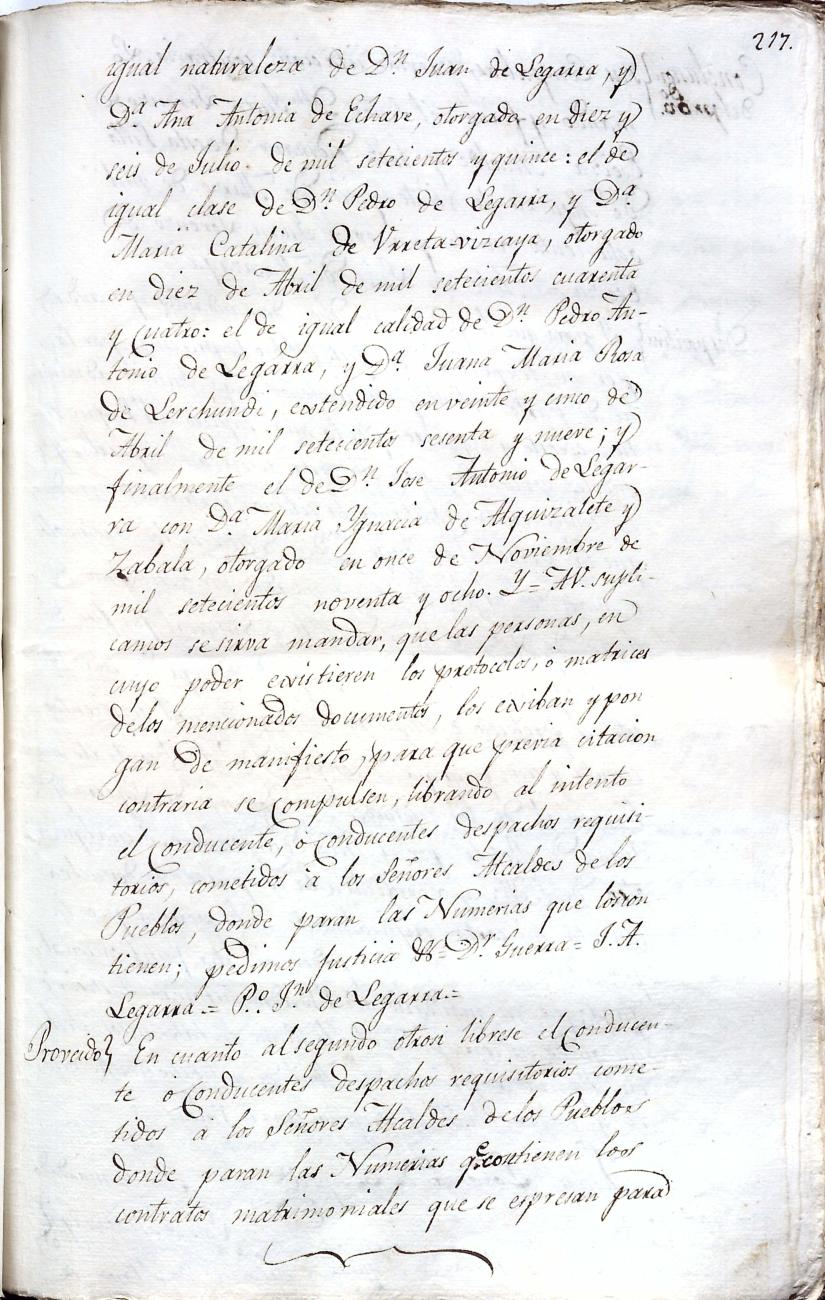 217.
igual naturaleza de Dn Juan de Legarra, y
Da Ana Antonia de Echave, otorgado en diez y
seis de Julio de mil setecientos y quince: el de
igual clase de Dn Pedro de Legarra, y Da
Maria Catalina de Vrreta-vizcaya, otorgado
en diez de Abril de mil setecientos cuarenta
y cuatro: el de igual calidad de Dn Pedro An-
tonio de Legarra, y Da Juana Maria Rosa
de Lerchundi, extendido en veinte y cinco de
Abril de mil setecientos sesenta y nueve; y
finalmente el de Dn Jose Antonio de Legar-
ra con Da Maria Ygnacia de Alquizalete y
Zabala, otorgado en once de Noviembre de
mil setecientos noventa y ocho. Y = A V. supli-
camos se sirva mandar, que las personas, en
cuyo poder existieren los protocolos, o matrices
de los mencionados documentos, los exiban y pon
gan de manifiesto, para que previa citacion
contraria se compulsen, librando al intento
el conducente, o conducentes despachos requisi-
torios, cometidos à los Señores Alcaldes de los
Pueblos, donde paran las Numerias que los con
tienen; pedimos Justicia &= Dr Guerra = J. A.
Legarra.= P.o Jn de Legarra.=
Proveido} En cuanto al segundo otrosi librese el conducen-
te o conducentes despachos requisitorios come-
tidos à los Señores Alcaldes de los Pueblos
donde paran las Numerias qe contienen los
contratos matrimoniales que se espresan para